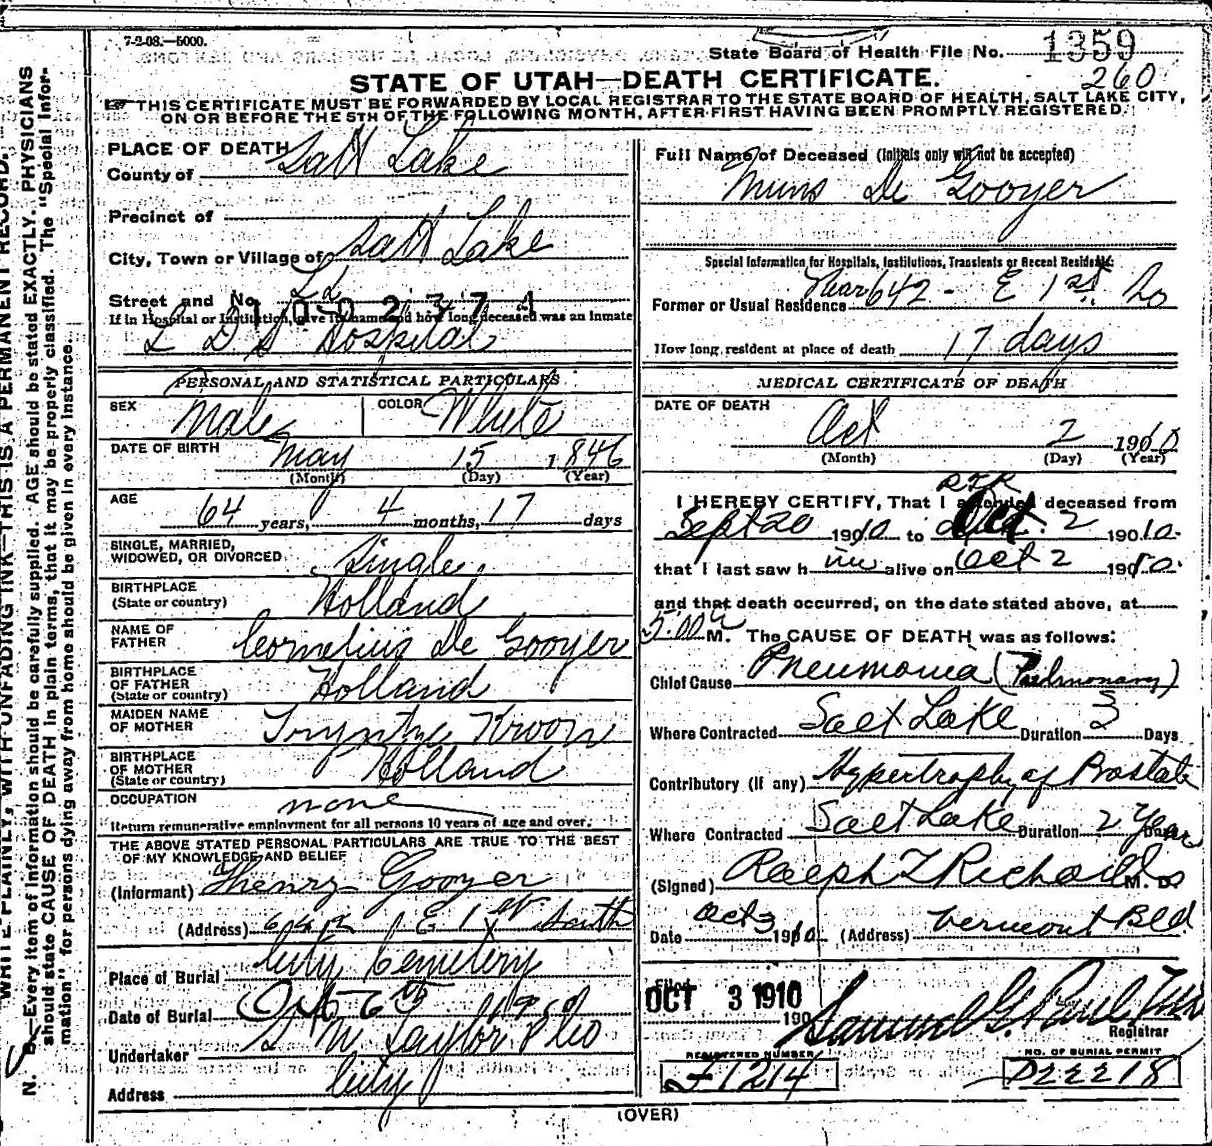 7-2-08.—5000.
State Board of Health File No. 1359
STATE OF UTAH—DEATH CERTIFICATE.
260
THIS CERTIFICATE MUST BE FORWARDED BY LOCAL REGISTRAR TO THE STATE BOARD OF HEALTH, SALT LAKE CITY,
ON OR BEFORE THE 5TH OF THE FOLLOWING MONTH, AFTER FIRST HAVING BEEN PROMPTLY REGISTERED.
PLACE OF DEATH
County of Salt Lake
Precinct of
City, Town or Village of Salt Lake
Street and No.
If in Hospital or Institution, give its name and how long deceased was an inmate
L D S Hospital
PERSONAL AND STATISTICAL PARTICULARS
SEX Male COLOR White
DATE OF BIRTH May 15 1846
(Month) (Day) (Year)
AGE 64 years, 4 months, 17 days
SINGLE, MARRIED,
WIDOWED, OR DIVORCED Single
BIRTHPLACE
(State or country) Holland
NAME OF
FATHER Cornelius De Gooyer
BIRTHPLACE
OF FATHER
(State or country) Holland
MAIDEN NAME
OF MOTHER Kroon
BIRTHPLACE
OF MOTHER
(State or country) Holland
OCCUPATION none
Return remunerative employment for all persons 10 years of age and over.
THE ABOVE STATED PERSONAL PARTICULARS ARE TRUE TO THE BEST
OF MY KNOWLEDGE AND BELIEF
(Informant) Henry Gooyer
(Address) 642 E 1st South
Place of Burial City Cemetery
Date of Burial Oct 6th
Undertaker S M Taylor & Co
Address City
Full Name of Deceased (Initials only will not be accepted)
De Gooyer
Special Information for Hospitals, Institutions, Transients or Recent Residents:
Former or Usual Residence Near 642 - E 1st So
How long resident at place of death 17 days
MEDICAL CERTIFICATE OF DEATH
DATE OF DEATH
Oct 2 1910
(Month) (Day) (Year)
I HEREBY CERTIFY, That I attended deceased from
Sept 20 1910 to Oct. 2 1910.
that I last saw him alive on Oct 2 1910.
and that death occurred, on the date stated above, at
5:00 a M. The CAUSE OF DEATH was as follows:
Chief Cause Pneumonia (Pulmonary)
Where Contracted Salt Lake Duration 3 Days
Contributory (if any) Hypertrophy of Prostate
Where Contracted Salt Lake Duration 2 Years
(Signed) Ralph T Richards M. D.
Date Oct 3 1910 (Address) Vermont Bld
Filed
OCT 3 1910
190
Samuel G. Paul
Registrar
REGISTERED NUMBER
F1214
NO. OF BURIAL PERMIT
D22218
(OVER)
WRITE PLAINLY, WITH UNFADING INK—THIS IS A PERMANENT RECORD.
N. B.—Every item of information should be carefully supplied. AGE should be stated EXACTLY. PHYSICIANS
should state CAUSE OF DEATH in plain terms, that it may be properly classified. The "Special Infor-
mation" for persons dying away from home should be given in every instance.